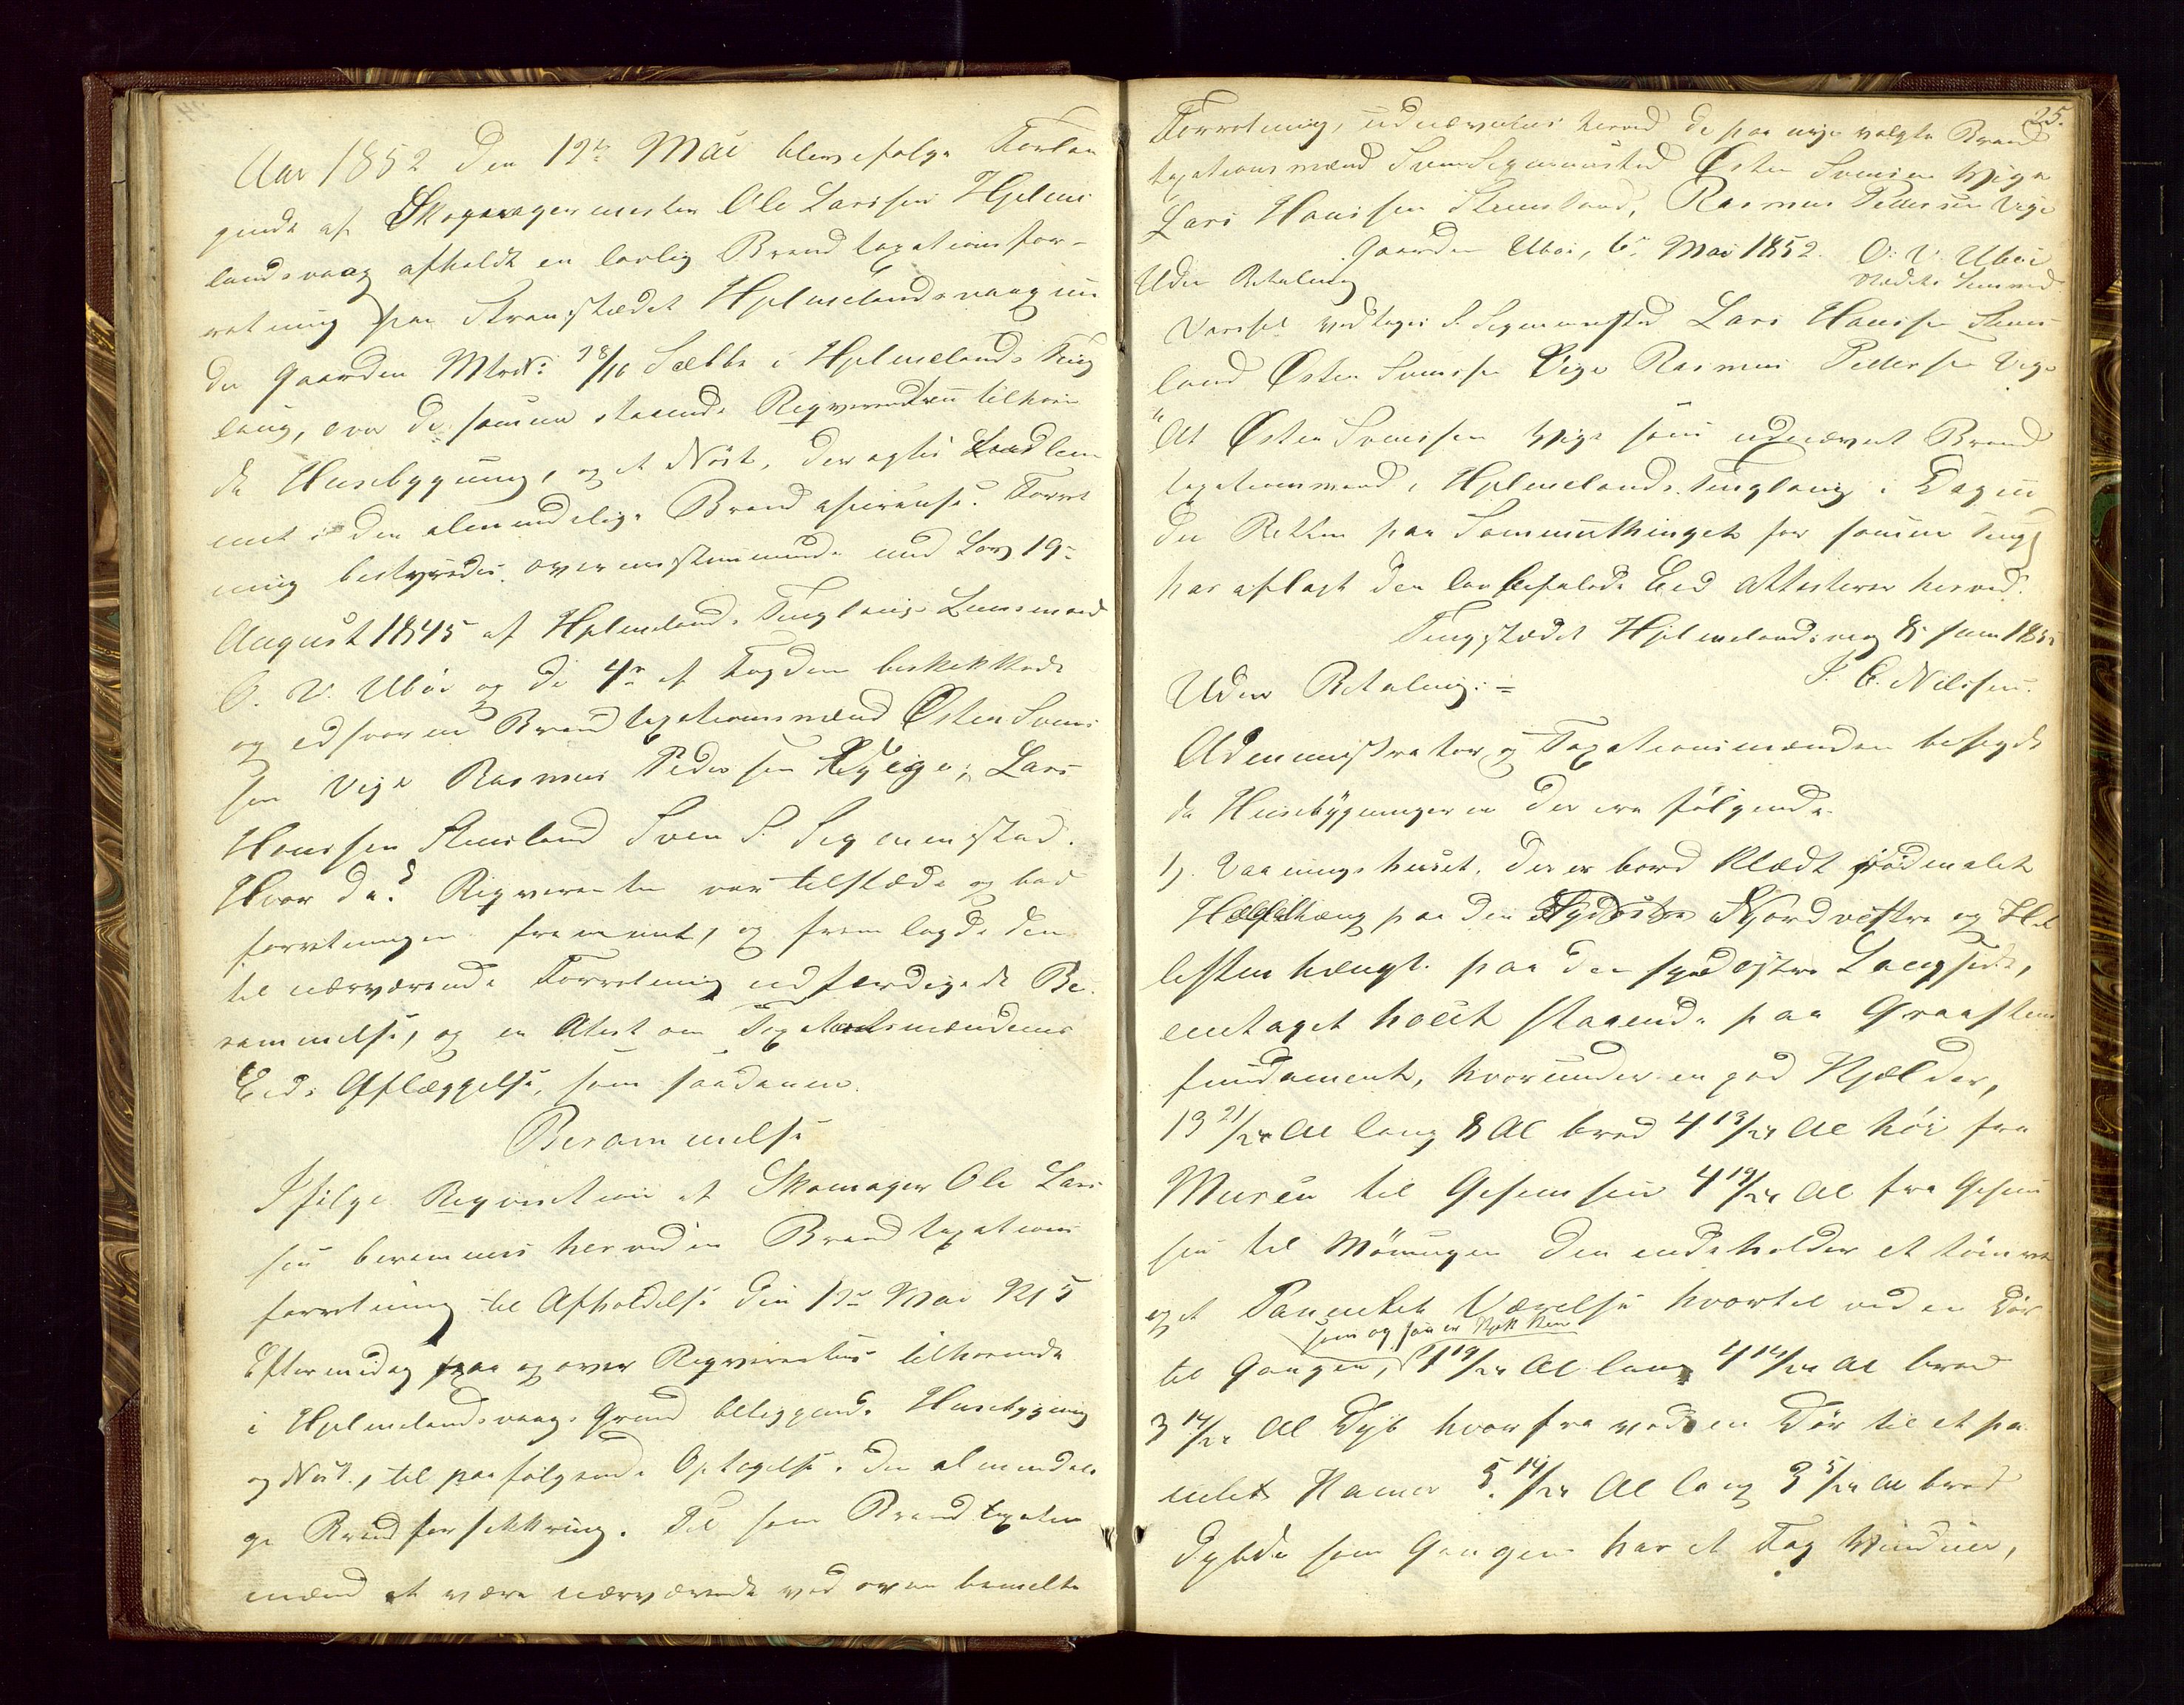 Aar 1852 den 12te Mai blev efter Forlan
gende af Skomagermester Ole Larssen Hjelme
landsvaag afholdt en lovlig Brandtaxationsfor-
retning paa Strandstædet Hjelmelandsvaag un
der Gaarden Mtr.N: 78/10 Sæbbe i Hjelmelands Ting
laug, over de samme staaende Reqvirenten tilhøren
de Husebygning, og et Nøst, der agtes indlem
met i den almindelige Brandassurance. Forret
ning bestyredes overensstemmende med Lov 19de
August 1845 af Hjelmelands Tinglaugs Lensmand
O. V. Ubøe og de 4re af Fogden beskikkede
og edsvorne Brandtaxationsmænd Østen Svens
sen Vige Rasmus Pedersen Vige, Lars
Hanssen Steinsland Sven S. Segmunstad.
Hvorda? Reqvirenten var tilstæde og bad
forretningen fremmet, og fremlagde den
til nærværende Forretning udfærdigede Be-
rammelse, og en Atest om Taxationsmændenes
Eds Aflæggelse, som saadanne.
Berammelse
Ifølge Reqvisition af Skomager Ole Lars
sen berammes herved en Brandtaxations
forretning til Afholdelse den 12te Mai Kl 5
Eftermidag paa og over Reqvirentens tilhørende
i Hjelmelandsvaags Grund beliggende Husebygning
og Nøst, til paafølgende Optagelse i den almindeli
ge Brandforsikkring. Til som Brandtaxations
mænd at være nærværende ved ovenbemeldte
25.
Forretning, udnævnes herved de paa nye valgte Brand
taxationsmænd Sven Segmunstad Østen Svensen Vige
Lars Hanssen Steinsland, Rasmus Pedersen Vige
Gaarden Ubøe, 6te Mai 1852. O. V. Ubøe
Uden Betaling
Varsel vedtages S. Segmunstad Lars Hanssen Steins
land Østen Svenssen Vige Rasmus Pedersen Vige
"At Østen Svenssen Vige som udnævnt Brand
taxationsmand i Hjelmelands Tinglaug i Dag un
der Retten paa Sommerthinget for samme Ting
har aflagt den lovbefalede Eed attesteres herved.
Tingstædet Hjelmelandsvaag 8 Juni 185
Uden Betaling. = J. C. Nilssen.
Administrator og Taxationsmændene besigtede
de Husebygningerne der ere følgende
1). Vaaningshuset, der er bordklædt rødmalet
paa den Nordvestre og
paa den sydøstre Langside,
entaget huset staaende paa Graasteens
fundament, hvorunder en god Kjælder,
13 21/24 Al lang 8 Al bred 4 13/24 Al høi fra
Muren til Gesimsen 4 19/24 Al fra Gesim
sen til Mønningen den indeholder et tømret
og et Panelet Værelse hvortil ved en Dør
som ogsaa er Kjøkken
til Gangen, 19/24 Al lang 4 14/24 Al bred
3 14/24 Al Dyb hvorfra ved en Dør til et pa
nelet Kamer 5. 14/24 Al lang 3 5/24 Al bred
Dybde som Gangen har et Fag Vinduer,